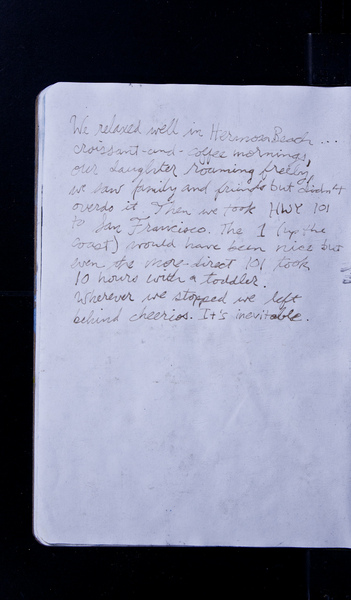 We relaxed well in Hermosa Beach ...
croissant-and-coffee mornings,
our daughter roaming freely,
we saw family and friends but didn't
overdo it. Then we took HWY 101
to San Francisco. The 1 (up the
coast) would have been nice but
even the more direct 101 took
10 hours with a toddler.
Wherever we stopped we left
behind cheerios. It's inevitable.